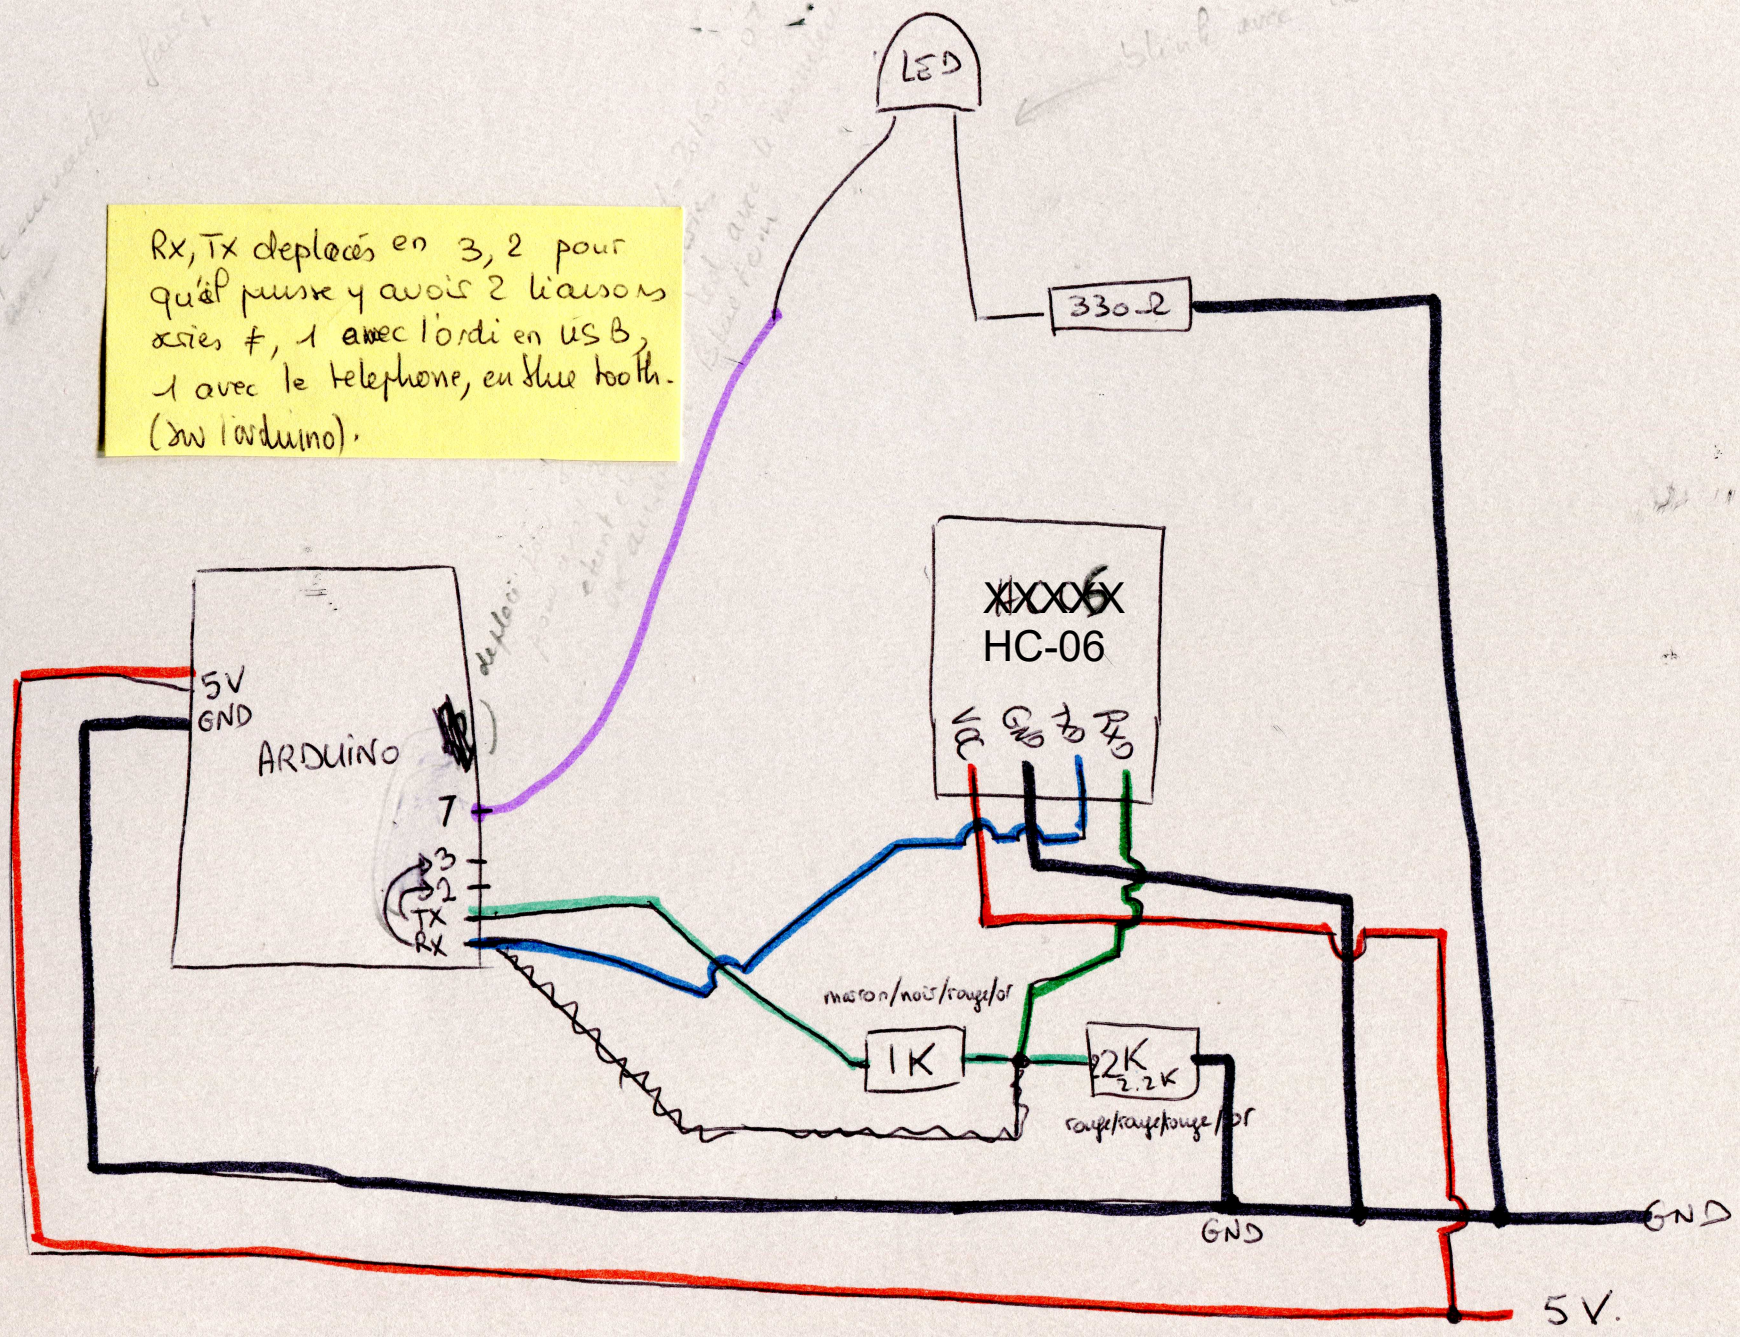 LED
Rx, Tx deplacés en 3, 2 pour
qu'il puisse y avoir 2 liaisons
series ≠, 1 avec l'ordi en USB,
1 avec le telephone, en blue tooth.
(sur l'arduino).
330Ω
HC-06
VCC GND TXD RXD
5V
GND
ARDUINO
7
3
2
TX
RX
marron/noir/rouge/or
1K
22K
2.2K
rouge/rouge/rouge/or
GND
GND
5V.